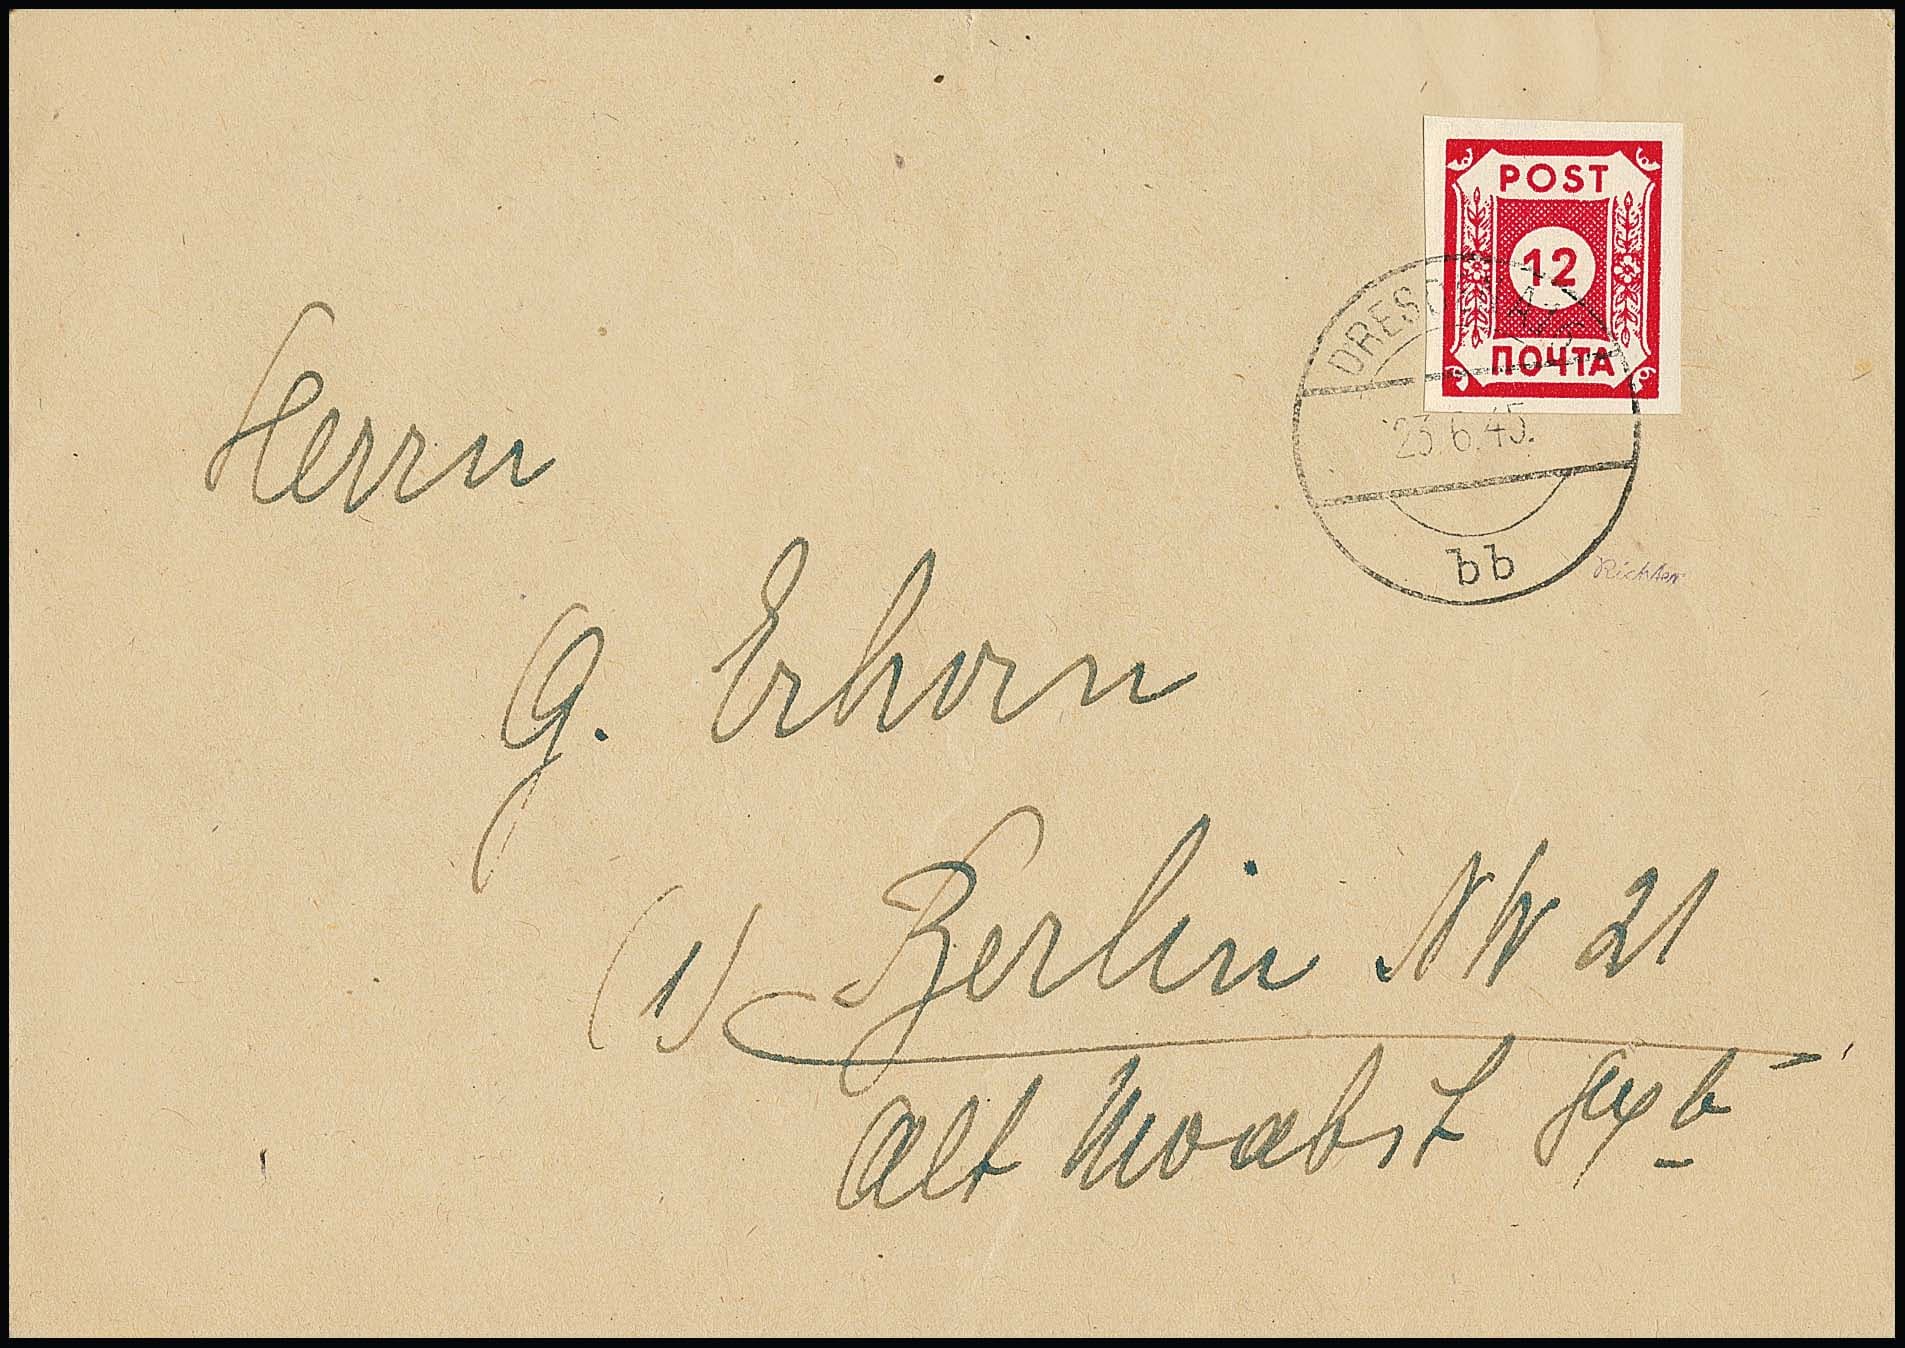 POST
12
ПОЧТА
DRESDEN A
23.6.45.
bb
Richter
Herrn
G. Erhorn
(1) Berlin NW 21
Alt Moabit